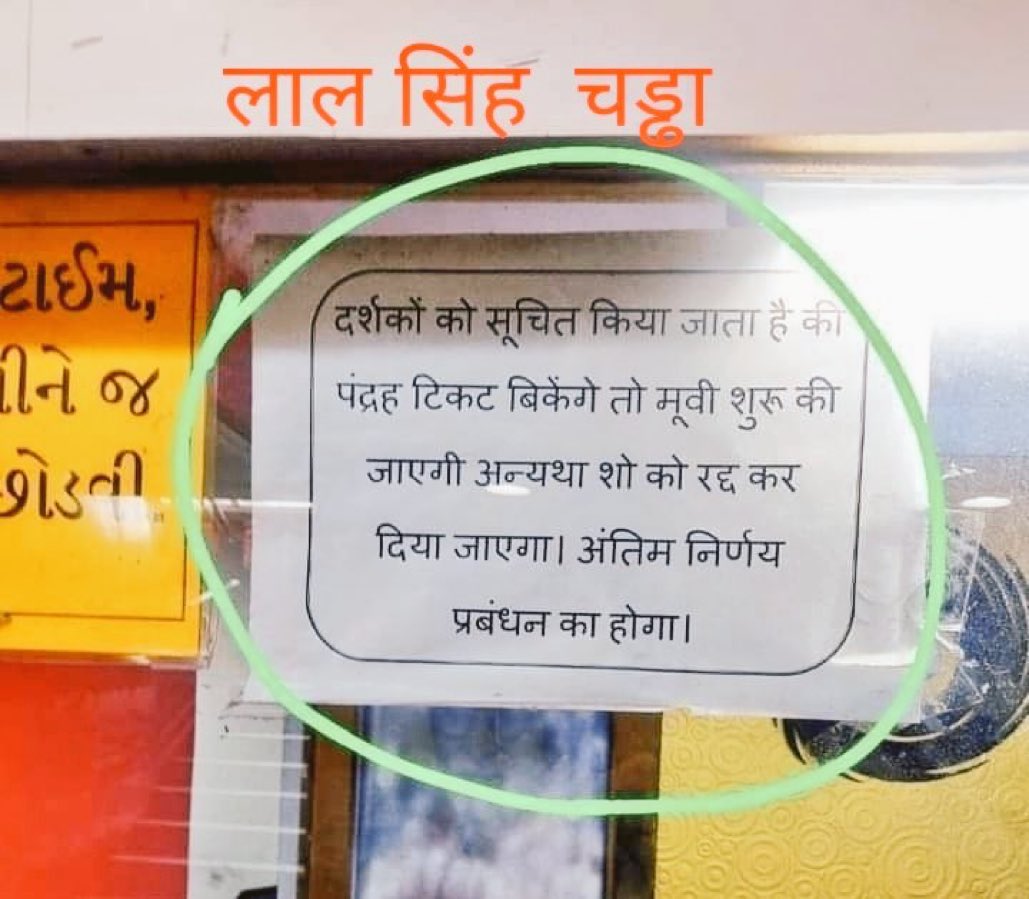 लाल सिंह चड्ढा
ટાઈમ,
ને જ
છોડવી
दर्शकों को सूचित किया जाता है की
पंद्रह टिकट बिकेंगे तो मूवी शुरू की
जाएगी अन्यथा शो को रद्द कर
दिया जाएगा। अंतिम निर्णय
प्रबंधन का होगा।